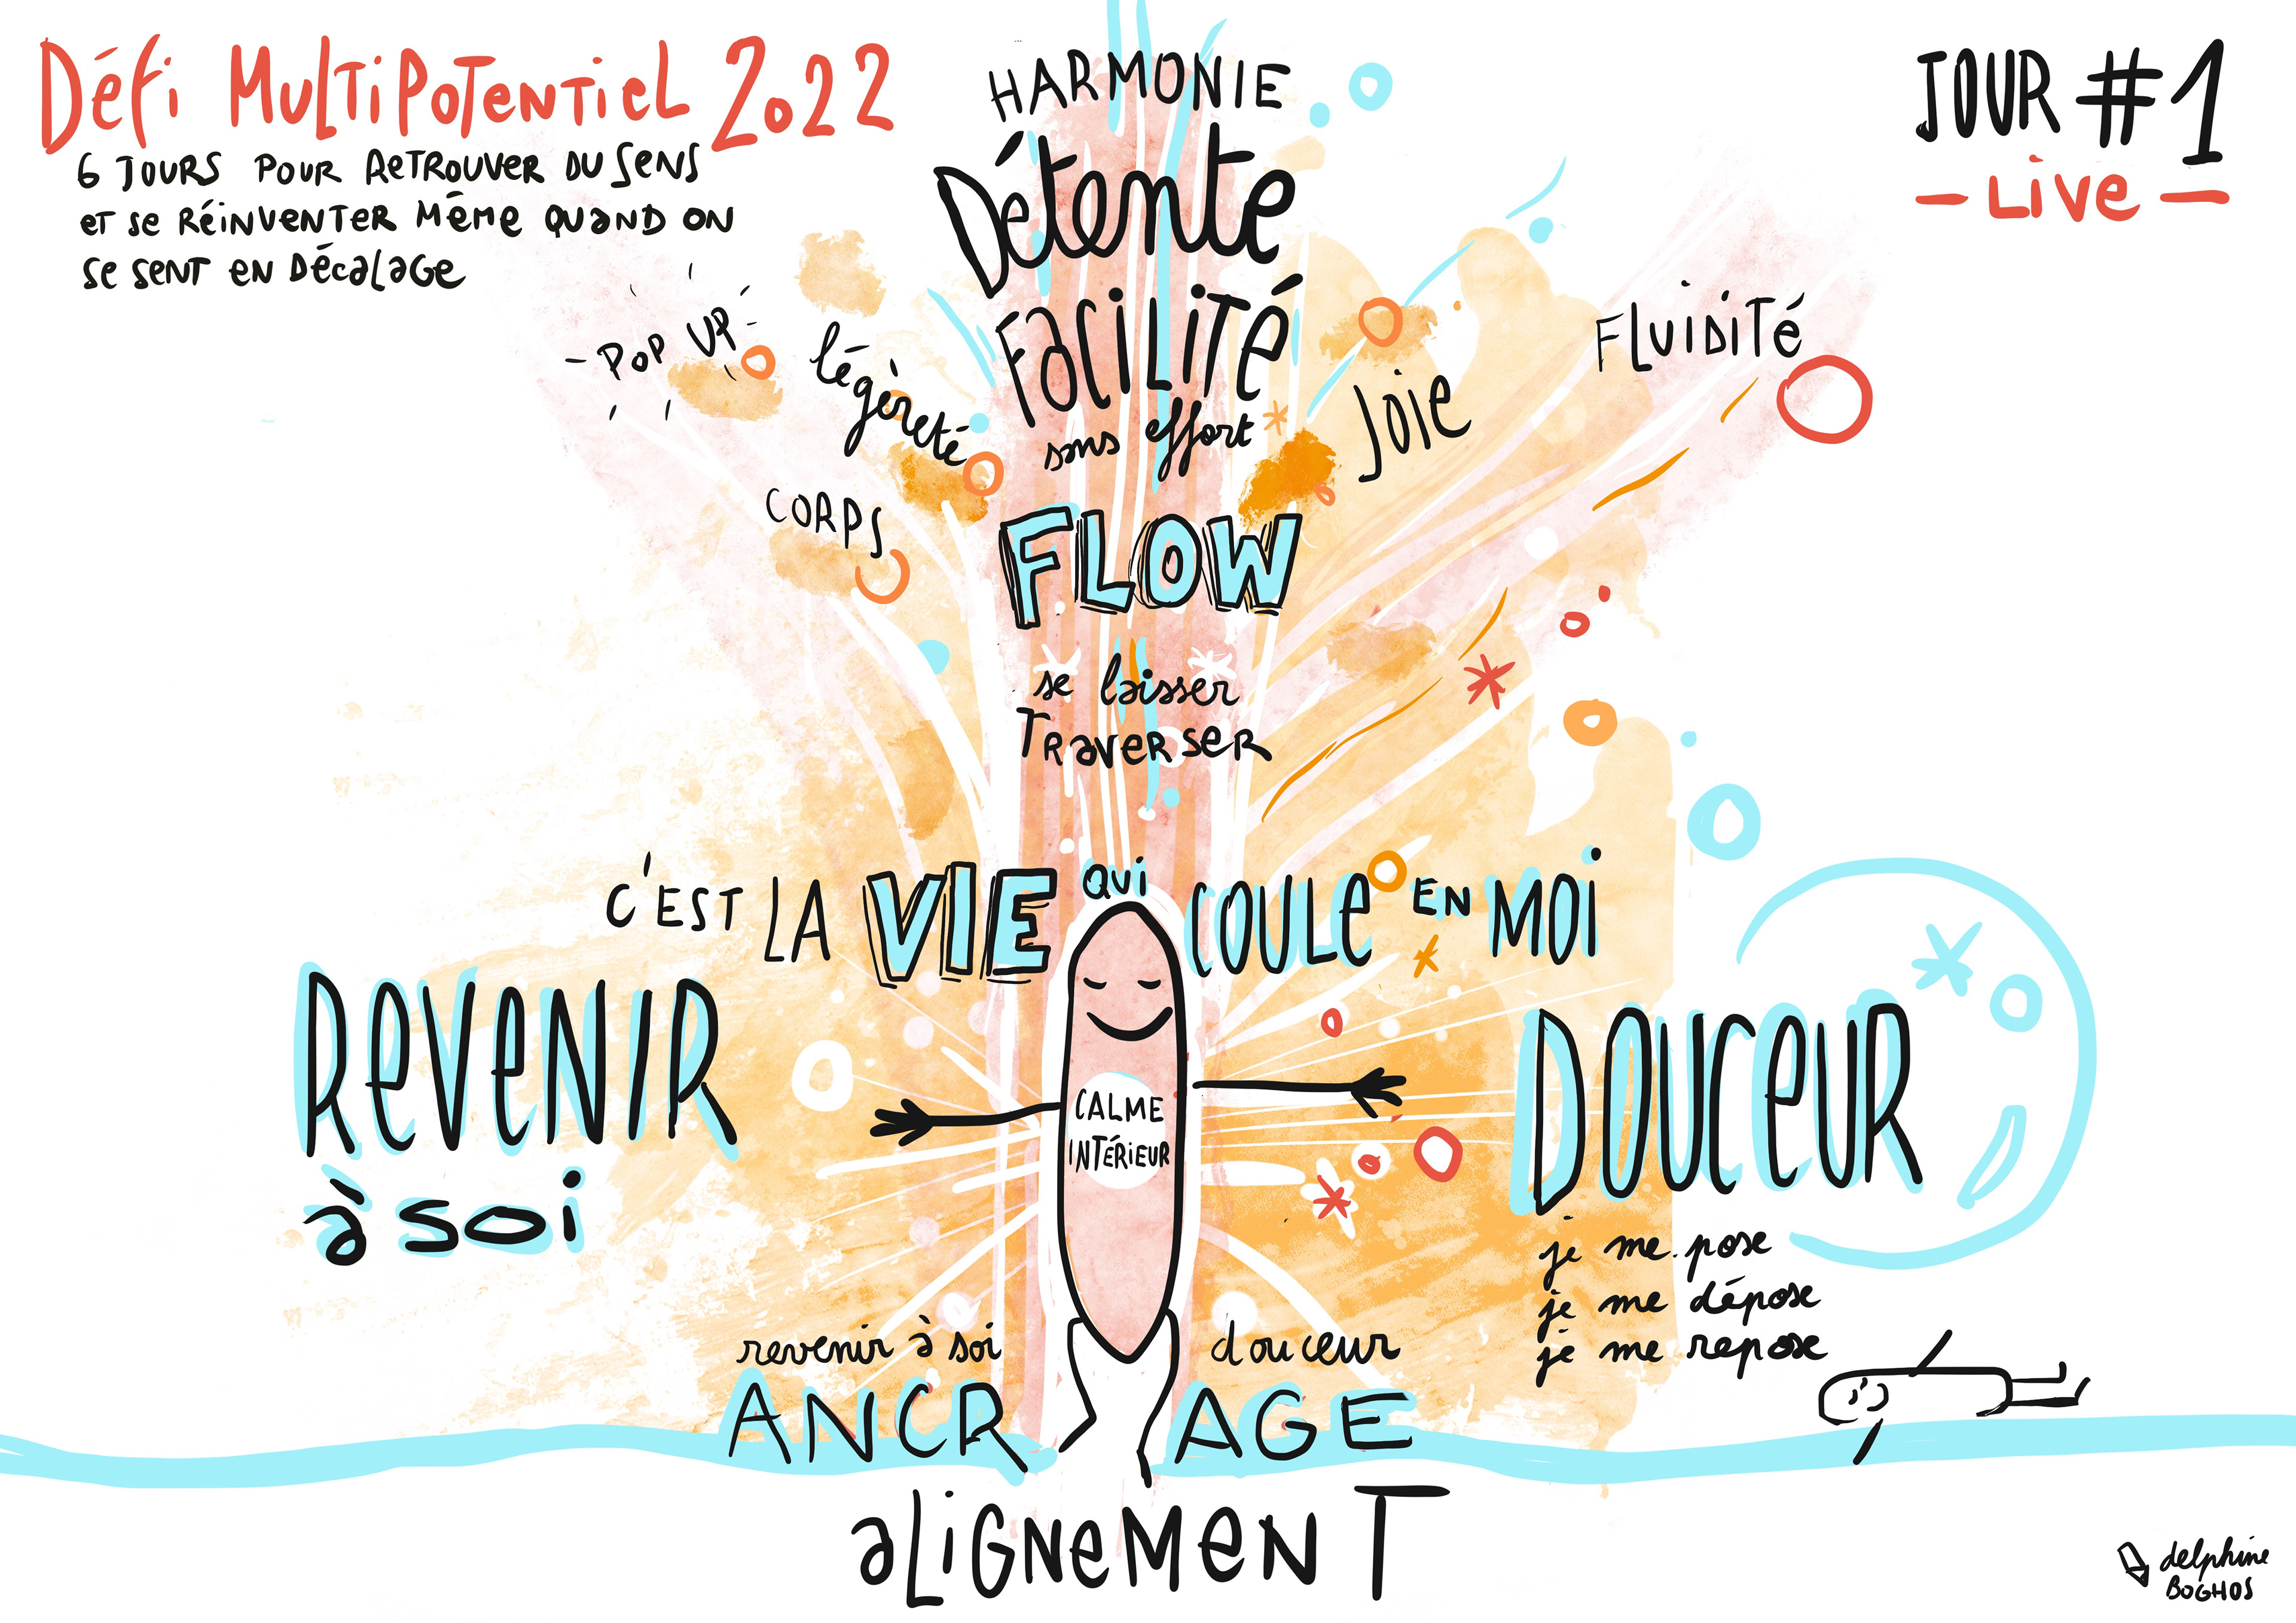 Défi MultiPotentiel 2022
6 jours pour retrouver du sens
et se réinventer même quand on
se sent en décalage
JOUR #1
- Live -
HARMONIE
Détente
Facilité
sans effort
- POP UP -
légèreté
CORPS
Joie
Fluidité
FLOW
se laisser
Traverser
C'EST LA VIE QUI COULE EN MOI
Revenir
à soi
CALME
INTÉRIEUR
Douceur
je me pose
je me dépose
je me repose
revenir à soi
douceur
ANCRAGE
alignement
delphine
BOGHOS